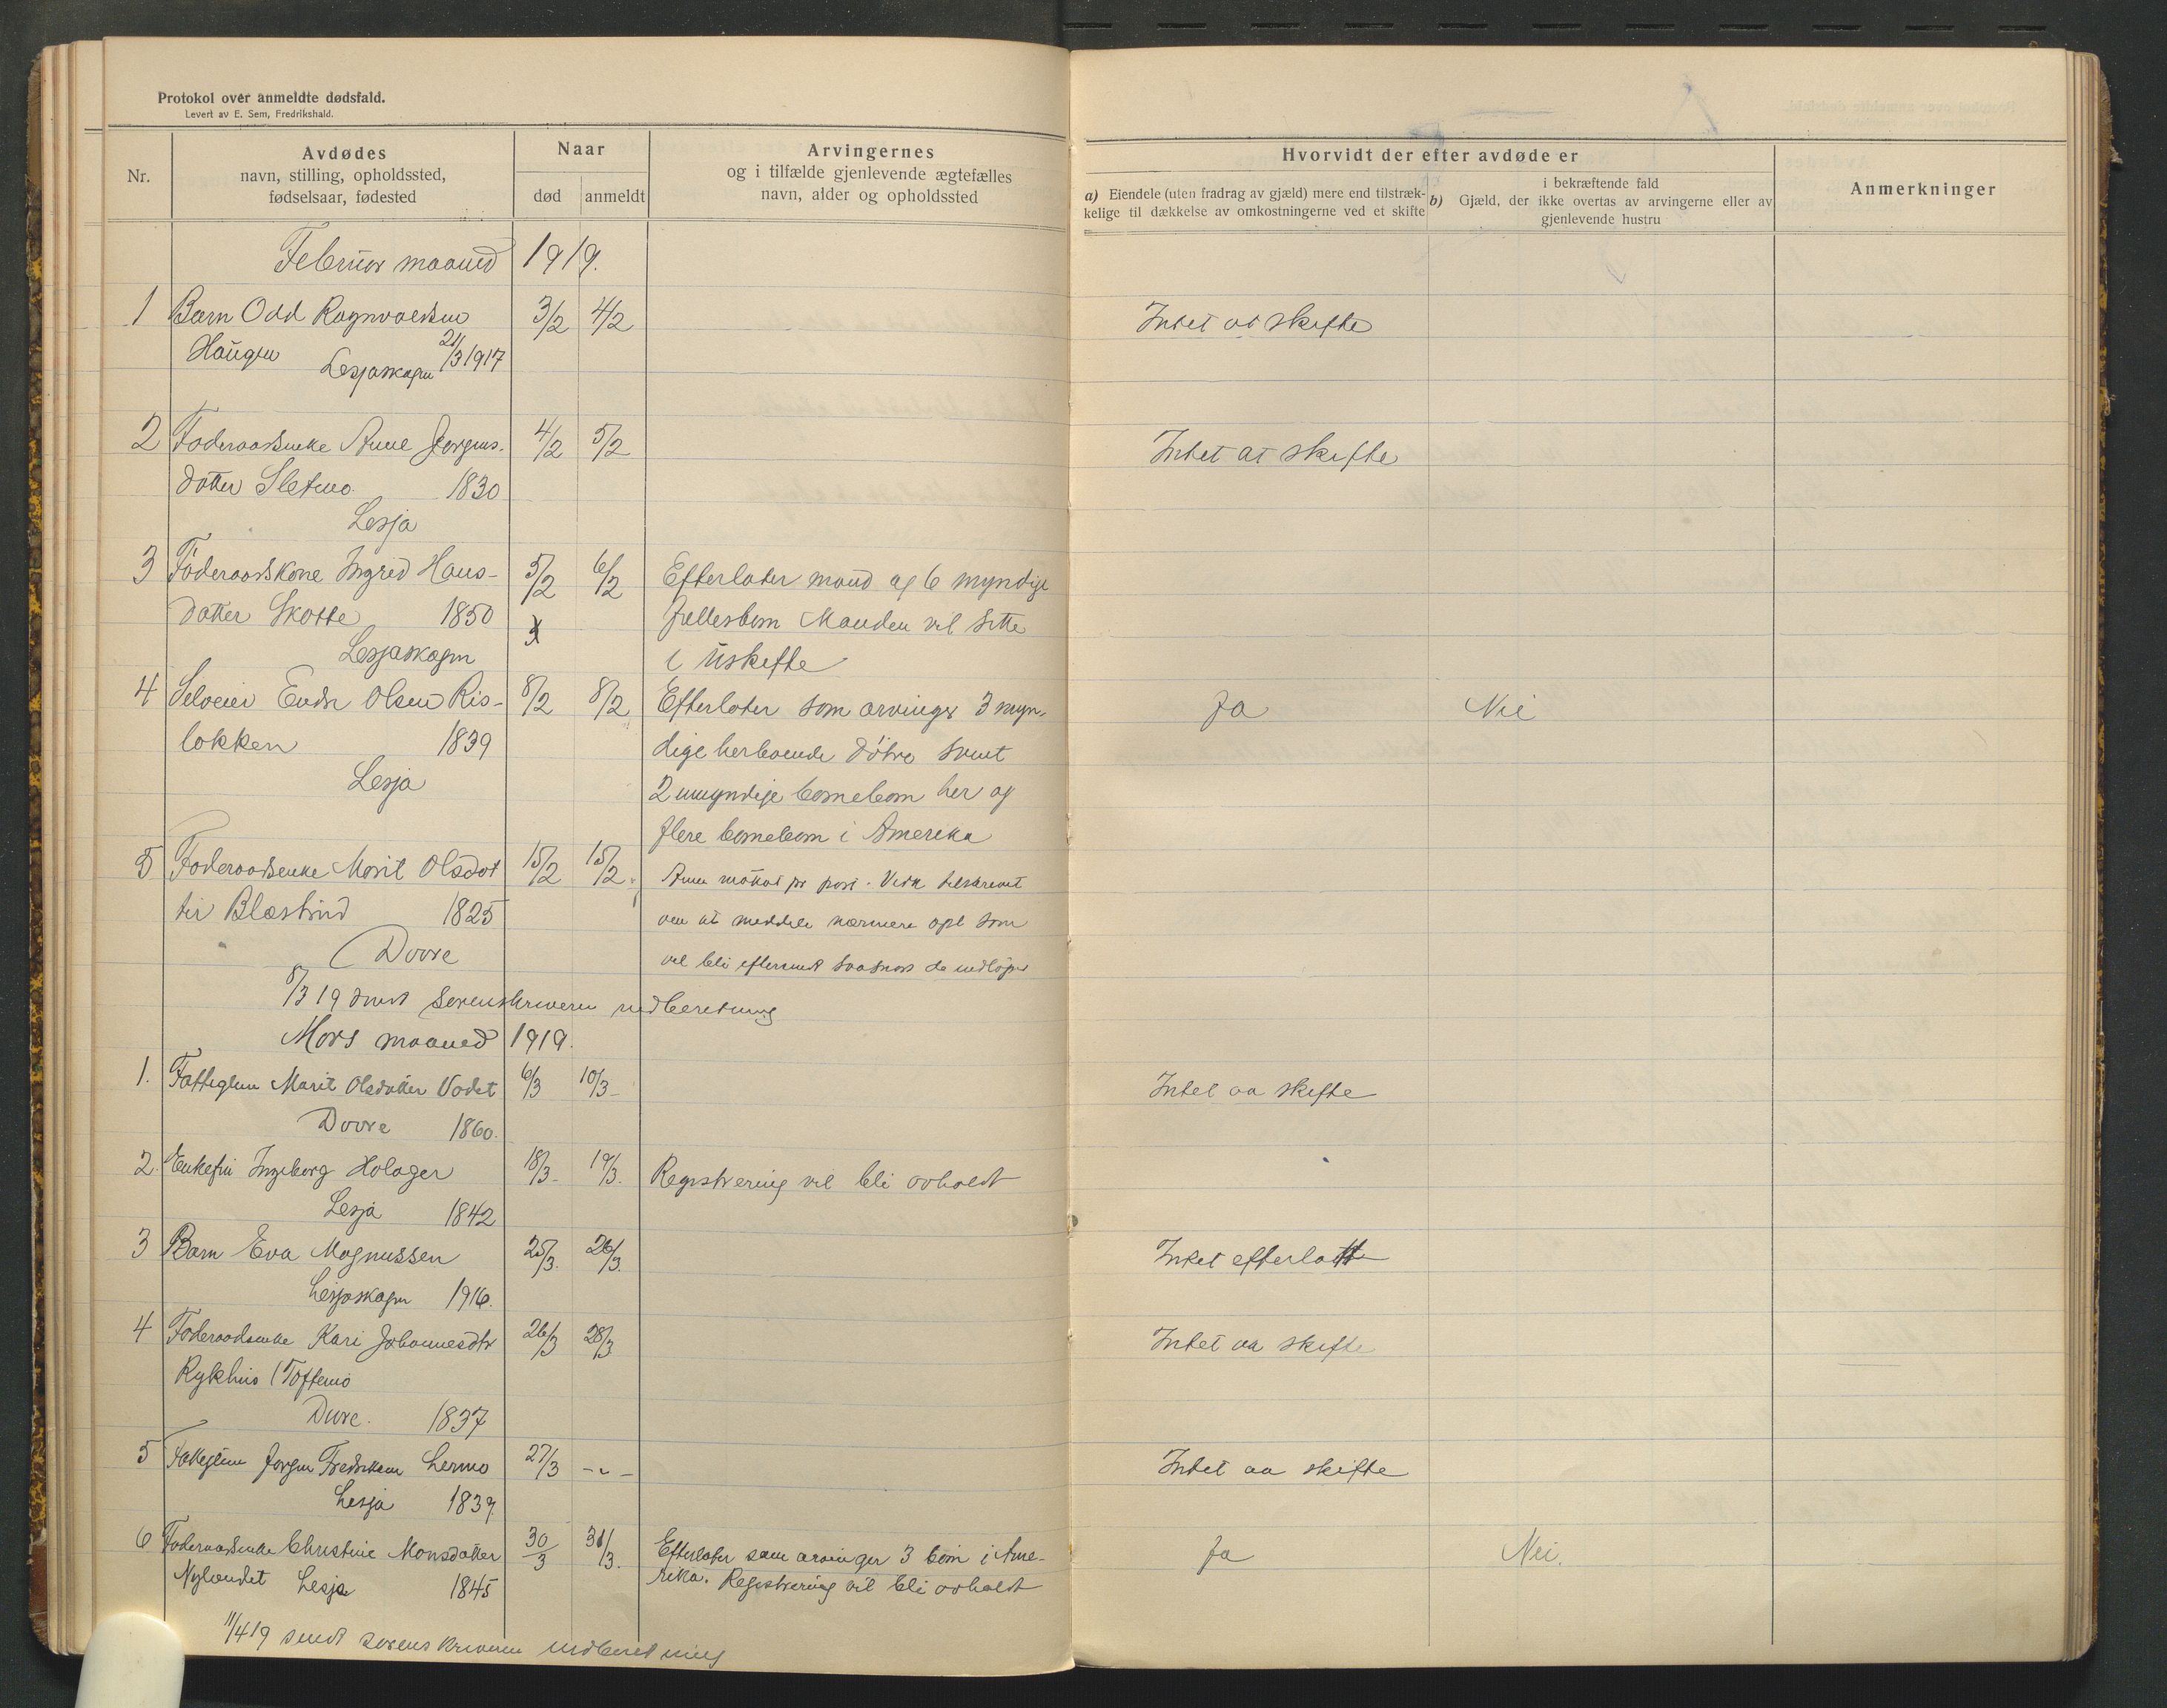 Protokol over anmeldte dødsfald.
Levert av E. Sem, Fredrikshald.
Nr.
Avdødes
navn, stilling, opholdssted,
fødselsaar, fødested
Naar
død anmeldt
Arvingernes
og i tilfælde gjenlevende ægtefælles
navn, alder og opholdssted
Hvorvidt der efter avdøde er
a) Eiendele (uten fradrag av gjæld) mere end tilstræk-
kelige til dækkelse av omkostningerne ved et skifte
i bekræftende fald
b) Gjæld, der ikke overtas av arvingerne eller av
gjenlevende hustru
Anmerkninger
Februar maaned 1919.
1 Barn Odd Ragnvaldsen 3/2 4/2 Intet at skifte
Haugen 21/3 1917
Lesjaskogen
2 Føderaadsenke Anne Jørgens- 4/2 5/2 Intet at skifte
datter Sletmo 1830
Lesja
3 Føderaadskone Ingrid Hans- 5/2 6/2 Efterlater mand og 6 myndige
datter Skotte 1850 fællesbørn Manden vil sitte
Lesjaskogen i uskifte
4 Selveier Endre Olsen Ris- 8/2 8/2 Efterlater som arvinger 3 myn- Ja Nei
løkken 1839 dige herboende døtre samt
Lesja 2 umyndige barnebarn her og
flere barnebarn i Amerika
5 Føderaadsenke Marit Olsdat 15/2 15/2 Anm mottat pr post.
ter Blæstrud 1825 om at meddele nærmere opl som
Dovre vil bli eftersendt saasnart de indløper
8/3 19 sendt sorenskriveren indberetning
Mars maaned 1919.
1. Fattiglem Marit Olsdatter Vadet 6/3 10/3 Intet aa skifte
Dovre 1860.
2. Enkefru Ingeborg Holager 18/3 19/3. Registrering vil bli avholdt
Lesja 1842
3 Barn Eva Magnussen 25/3. 26/3. Intet efterlatt
Lesjaskogen 1916.
4 Føderaadsenke Kari Johannesdtr 26/3 28/3 Intet aa skifte
Rykhus (Toftemo
Dovre. 1837
5 Fattiglem Jørgen Fredriksen Lermo 27/3 -"- Intet aa skifte
Lesja 1839
6 Føderaadsenke Christine Monsdatter 30/3 31/3. Efterlater som arvinger 3 børn i Ame- Ja Nei.
Nylandet Lesja 1845 rika. Registrering vil bli avholdt
11/4 19 sendt sorenskriveren indberetning